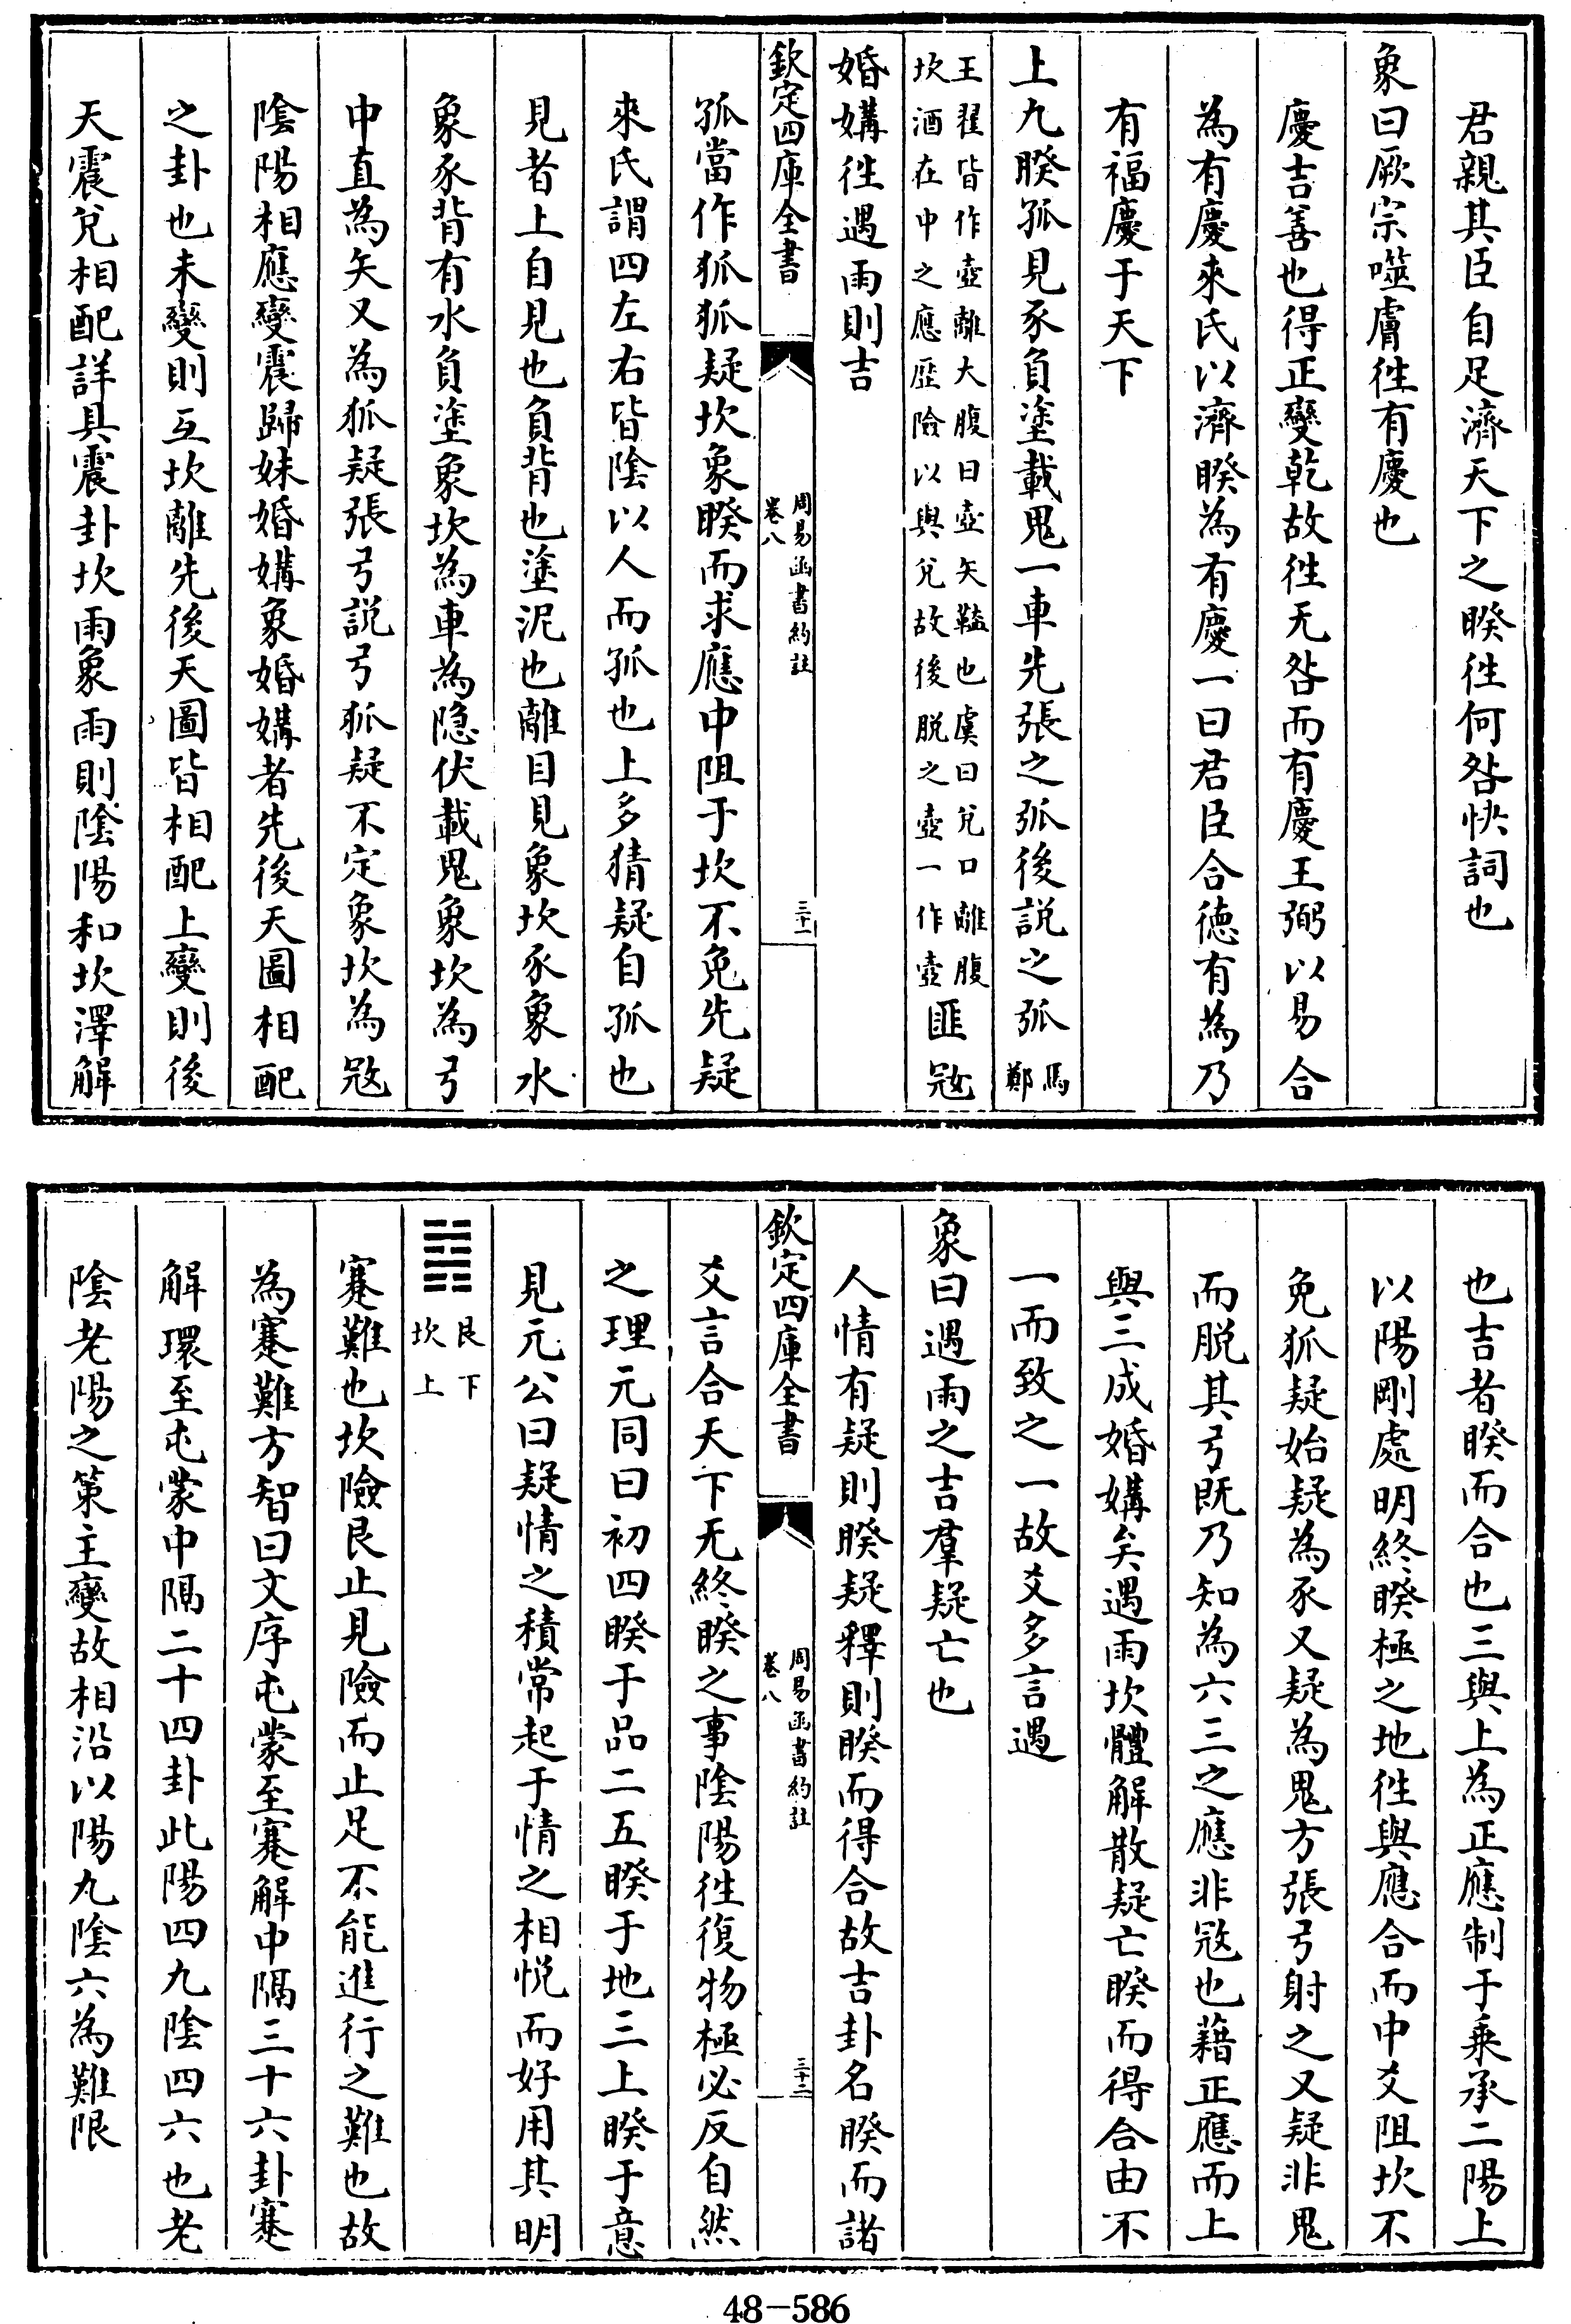 君親其臣自足濟天下之睽徃何咎快詞也
象曰厥宗噬膚徃有慶也
慶吉善也得正變乾故徃无咎而有慶王弼以易合
為有慶來氏以濟睽為有慶一曰君臣合徳有為乃
有福慶于天下
上九睽孤見豕負塗載鬼一車先張之弧後説之弧馬鄭
王翟皆作壺離大腹曰壺矢鞱也虞曰兊口離腹
坎酒在中之應厯險以與兊故後脱之壺一作壺匪冦
婚媾徃遇雨則吉
欽定四庫全書
周易函書約註
卷八
三十一
孤當作狐狐疑坎象睽而求應中阻于坎不免先疑
來氏謂四左右皆陰以人而孤也上多猜疑自孤也
見者上自見也負背也塗泥也離目見象坎豕象水
象豕背有水負塗象坎為車為隐伏載鬼象坎為弓
中直為矢又為狐疑張弓説弓狐疑不定象坎為冦
陰陽相應變震歸妹婚媾象婚媾者先後天圖相配
之卦也未變則互坎離先後天圖皆相配上變則後
天震兊相配詳具震卦坎雨象雨則陰陽和坎澤解
也吉者睽而合也三與上為正應制于乘承二陽上
以陽剛處明終睽極之地徃與應合而中爻阻坎不
免狐疑始疑為豕又疑為鬼方張弓射之又疑非鬼
而脱其弓既乃知為六三之應非冦也藉正應而上
與三成婚媾矣遇雨坎體解散疑亡睽而得合由不
一而致之一故爻多言遇
象曰遇雨之吉羣疑亡也
人情有疑則睽疑釋則睽而得合故吉卦名睽而諸
欽定四庫全書
周易函書約註
卷八
三十二
爻言合天下无終睽之事陰陽徃復物極必反自然
之理元同曰初四睽于品二五睽于地三上睽于意
見元公曰疑情之積常起于情之相悦而好用其明
䷦艮下坎上
蹇難也坎險艮止見險而止足不能進行之難也故
為蹇難方智曰文序屯蒙至蹇解中隔三十六卦蹇
解環至屯蒙中隔二十四卦此陽四九陰四六也老
陰老陽之策主變故相沿以陽九陰六為難限
48-586